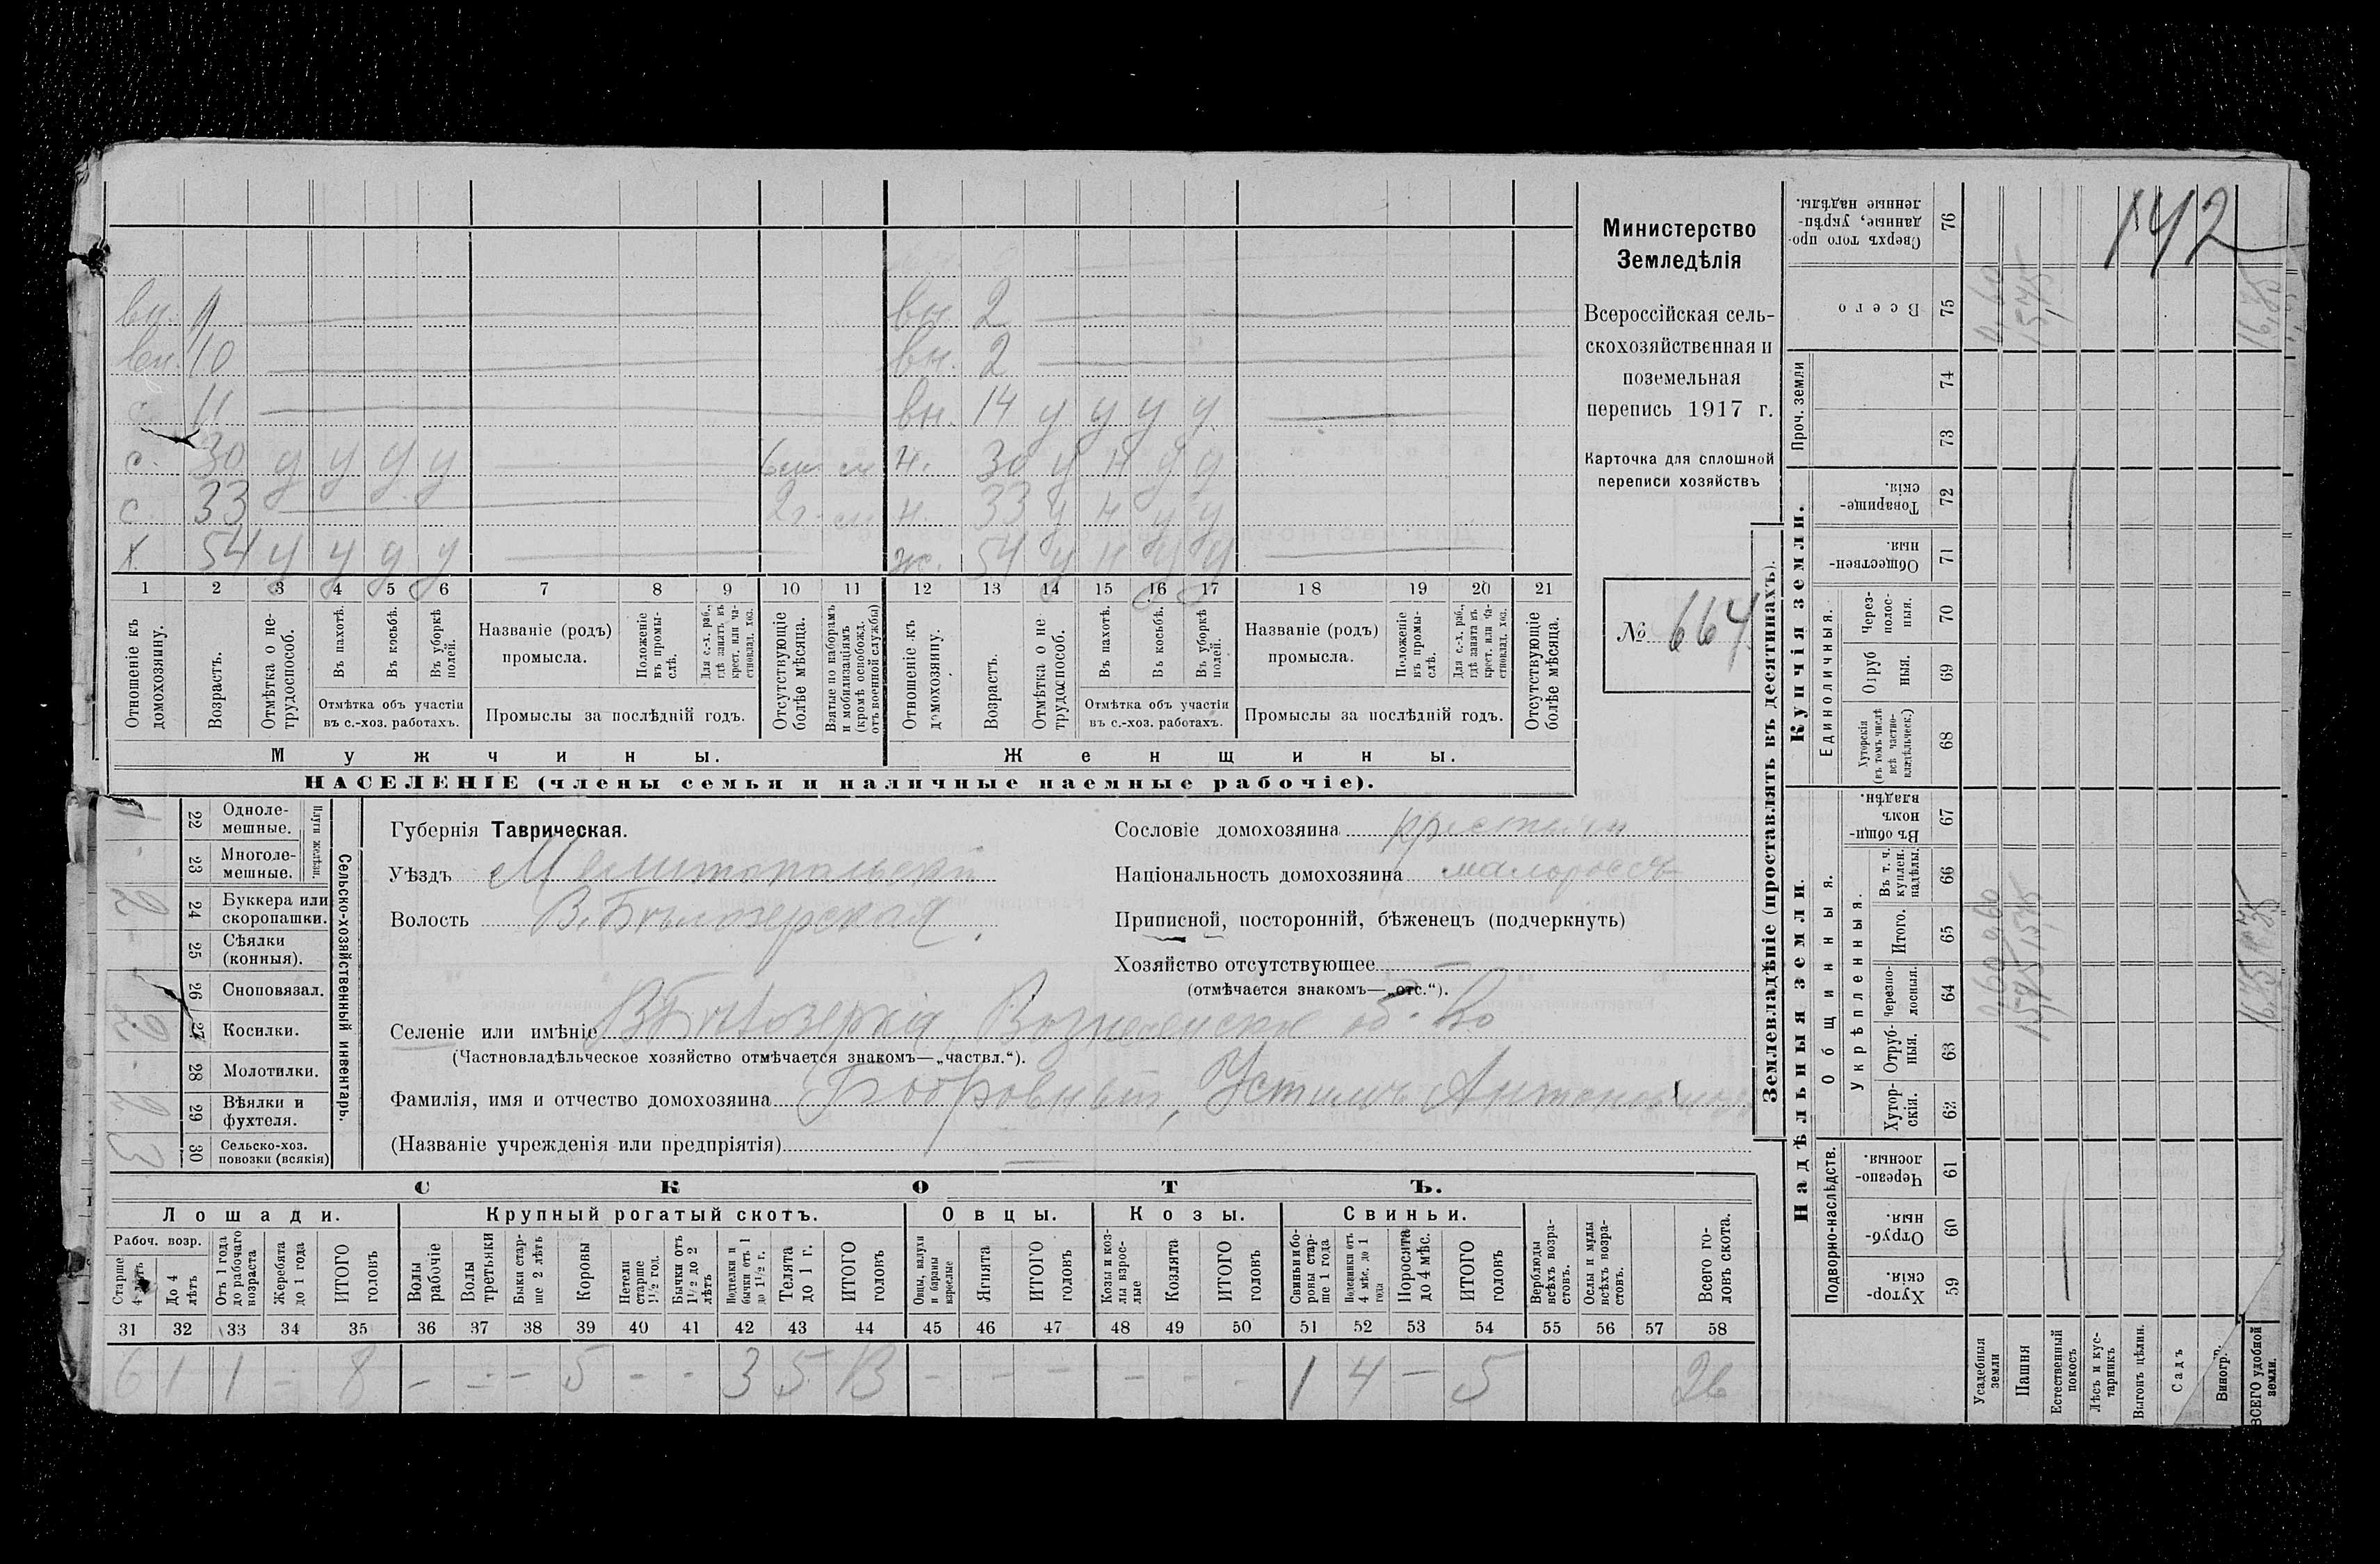 142
Министерство
Земледѣлія
Всероссійская сель-
скохозяйственная и
поземельная
перепись 1917 г.
Карточка для сплошной
переписи хозяйствъ
№ 664
вн. 2
вн. 10 вн. 2
с. 11 вн. 14 у у у у
с. 30 у у у у н. 30 у н у у
с. 33 2 г. н. 33 у н у у
х. 54 у у у у ж. 54 у н у у
1 2 3 4 5 6 7 8 9 10 11 12 13 14 15 16 17 18 19 20 21
Отношеніе къ домохозяину.
Возрастъ.
Отмѣтка о не-
трудоспособ.
Въ пахотѣ.
Въ косьбѣ.
Въ уборкѣ полей.
Отмѣтка объ участіи
въ с.-хоз. работахъ.
Названіе (родъ)
промысла.
Положеніе въ промы-
слѣ.
Для с.-х. раб.,
гдѣ занятъ въ
крест. или ча-
стновлад. хоз.
Промыслы за послѣдній годъ.
Отсутствующіе
болѣе мѣсяца.
Взятые по наборамъ
и мобилизаціямъ
(кромѣ освобожд.
отъ военной службы)
Отношеніе къ
домохозяину.
Возрастъ.
Отмѣтка о не
трудоспособ.
Въ пахотѣ.
Въ косьбѣ.
Въ уборкѣ полей.
Отмѣтка объ участіи
въ с.-хоз. работахъ.
Названіе (родъ)
промысла.
Положеніе въ промы-
слѣ.
Для с.-х. раб.,
гдѣ занята въ
крест. или ча-
стновлад. хоз.
Промыслы за послѣдній годъ.
Отсутствующіе
болѣе мѣсяца.
Мужчины. Женщины.
НАСЕЛЕНІЕ (члены семьи и наличные наемные рабочіе).
Сельско-хозяйственный инвентарь.
Плуги желѣзн.
22 Одноле-
мешные.
23 Многоле-
мешные.
24 Буккера или
скоропашки.
25 Сѣялки
(конныя).
26 Сноповязал.
27 Косилки.
28 Молотилки.
29 Вѣялки и
фухтеля.
30 Сельско-хоз.
повозки (всякія)
3
Губернія Таврическая.
Уѣздъ Мелитопольскій
Волость В. Бѣлозерская.
Сословіе домохозяина крестьян
Національность домохозяина малоросс
Приписной, посторонній, бѣженецъ (подчеркнуть)
Хозяйство отсутствующее
(отмѣчается знакомъ—„отс.“).
Селеніе или имѣніе В Бѣлозерка, Вознесенское об-во
(Частновладѣльческое хозяйство отмѣчается знакомъ—„частвл.“).
Фамилія, имя и отчество домохозяина Бобровный, Устимъ Антонович
(Названіе учрежденія или предпріятія)
СКОТЪ.
Лошади. Крупный рогатый скотъ. Овцы. Козы. Свиньи.
Рабоч. возр.
Старше
4 лѣтъ
До 4
лѣтъ
Отъ 1 года
до рабочаго
возраста
Жеребята
до 1 года
ИТОГО
головъ
Волы
рабочіе
Волы
третьяки
Быки стар-
ше 2 лѣтъ
Коровы
Нетели
старше
1½ год.
Бычки отъ
1½ до 2
лѣтъ
Подтелки и
бычки отъ 1
до 1½ г.
Телята
до 1 г.
ИТОГО
головъ
Овцы, валухи
и бараны
взрослые
Ягнята
ИТОГО
головъ
Козы и коз-
лы взрос-
лые
Козлята
ИТОГО
головъ
Свиньи и бо-
ровы стар-
ше 1 года
Подсвинки отъ
4 мѣс. до 1
года
Поросята
до 4 мѣс.
ИТОГО
головъ
Верблюды
всѣхъ возра-
стовъ.
Ослы и мулы
всѣхъ возра-
стовъ.
Всего го-
ловъ скота.
31 32 33 34 35 36 37 38 39 40 41 42 43 44 45 46 47 48 49 50 51 52 53 54 55 56 57 58
6 1 1 - 8 - - - 5 - - 3 5 13 - - - - - - 1 4 - 5 26
Землевладѣніе (проставлять въ десятинахъ).
Сверхъ того про-
данные, укрѣп-
ленные надѣлы.
76
Всего 75
Проч. земли
74
73
Купчія земли.
Товарище-
скія.
72
Обществен-
ныя.
71
Единоличныя.
Через-
полос-
ныя.
70
Отруб
ныя.
69
Хуторскія
(въ томъ числѣ
всѣ частно-
владѣльческ.)
68
Надѣльныя земли.
Общинныя.
Въ общин-
номъ
владѣн.
67
Укрѣпленныя.
Въ т. ч.
куплен.
надѣлы.
66
Итого.
65
Черезпо-
лосныя.
64
Отруб-
ныя.
63
Хутор-
скія.
62
Подворно-наслѣдств.
Черезпо-
лосныя.
61
Отруб-
ныя.
60
Хутор-
скія.
59
Усадебныя
земли
Пашня
Естественный
покосъ
Лѣсъ и кус-
тарникъ
Выгонъ цѣлин.
Садъ
Виногр.
ВСЕГО удобной
земли.